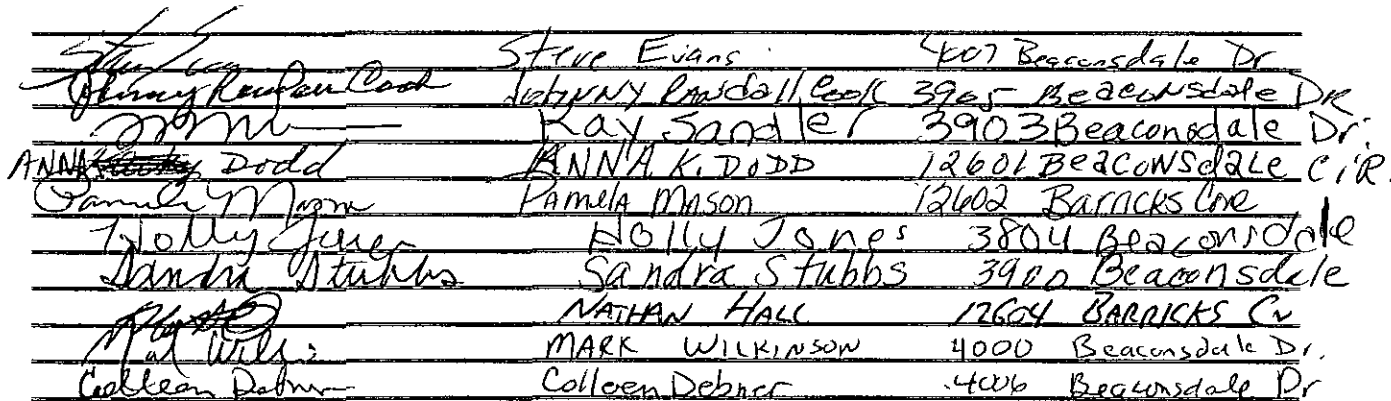 Steve Evans 4007 Beaconsdale Dr
Johnny Randall Cook JohNNY RANdall Cook 3905 Beaconsdale DR
Kay Sandler 3903 Beaconsdale Dr.
ANNA Dodd ANNA K. DODD 12601 BeacoNSdale CiR.
Pamela Mason PAMelA MASON 12602 Barricks Cove
Holly Jones Holly Jones 3804 Beaconsdale
Sandra Stubbs Sandra Stubbs 3900 Beaconsdale
NATHAN HALL 12604 BARRICKS Cv
MARK WILKINSON 4000 Beaconsdale Dr.
Colleen Debner Colleen Debner 4006 Beaconsdale Dr